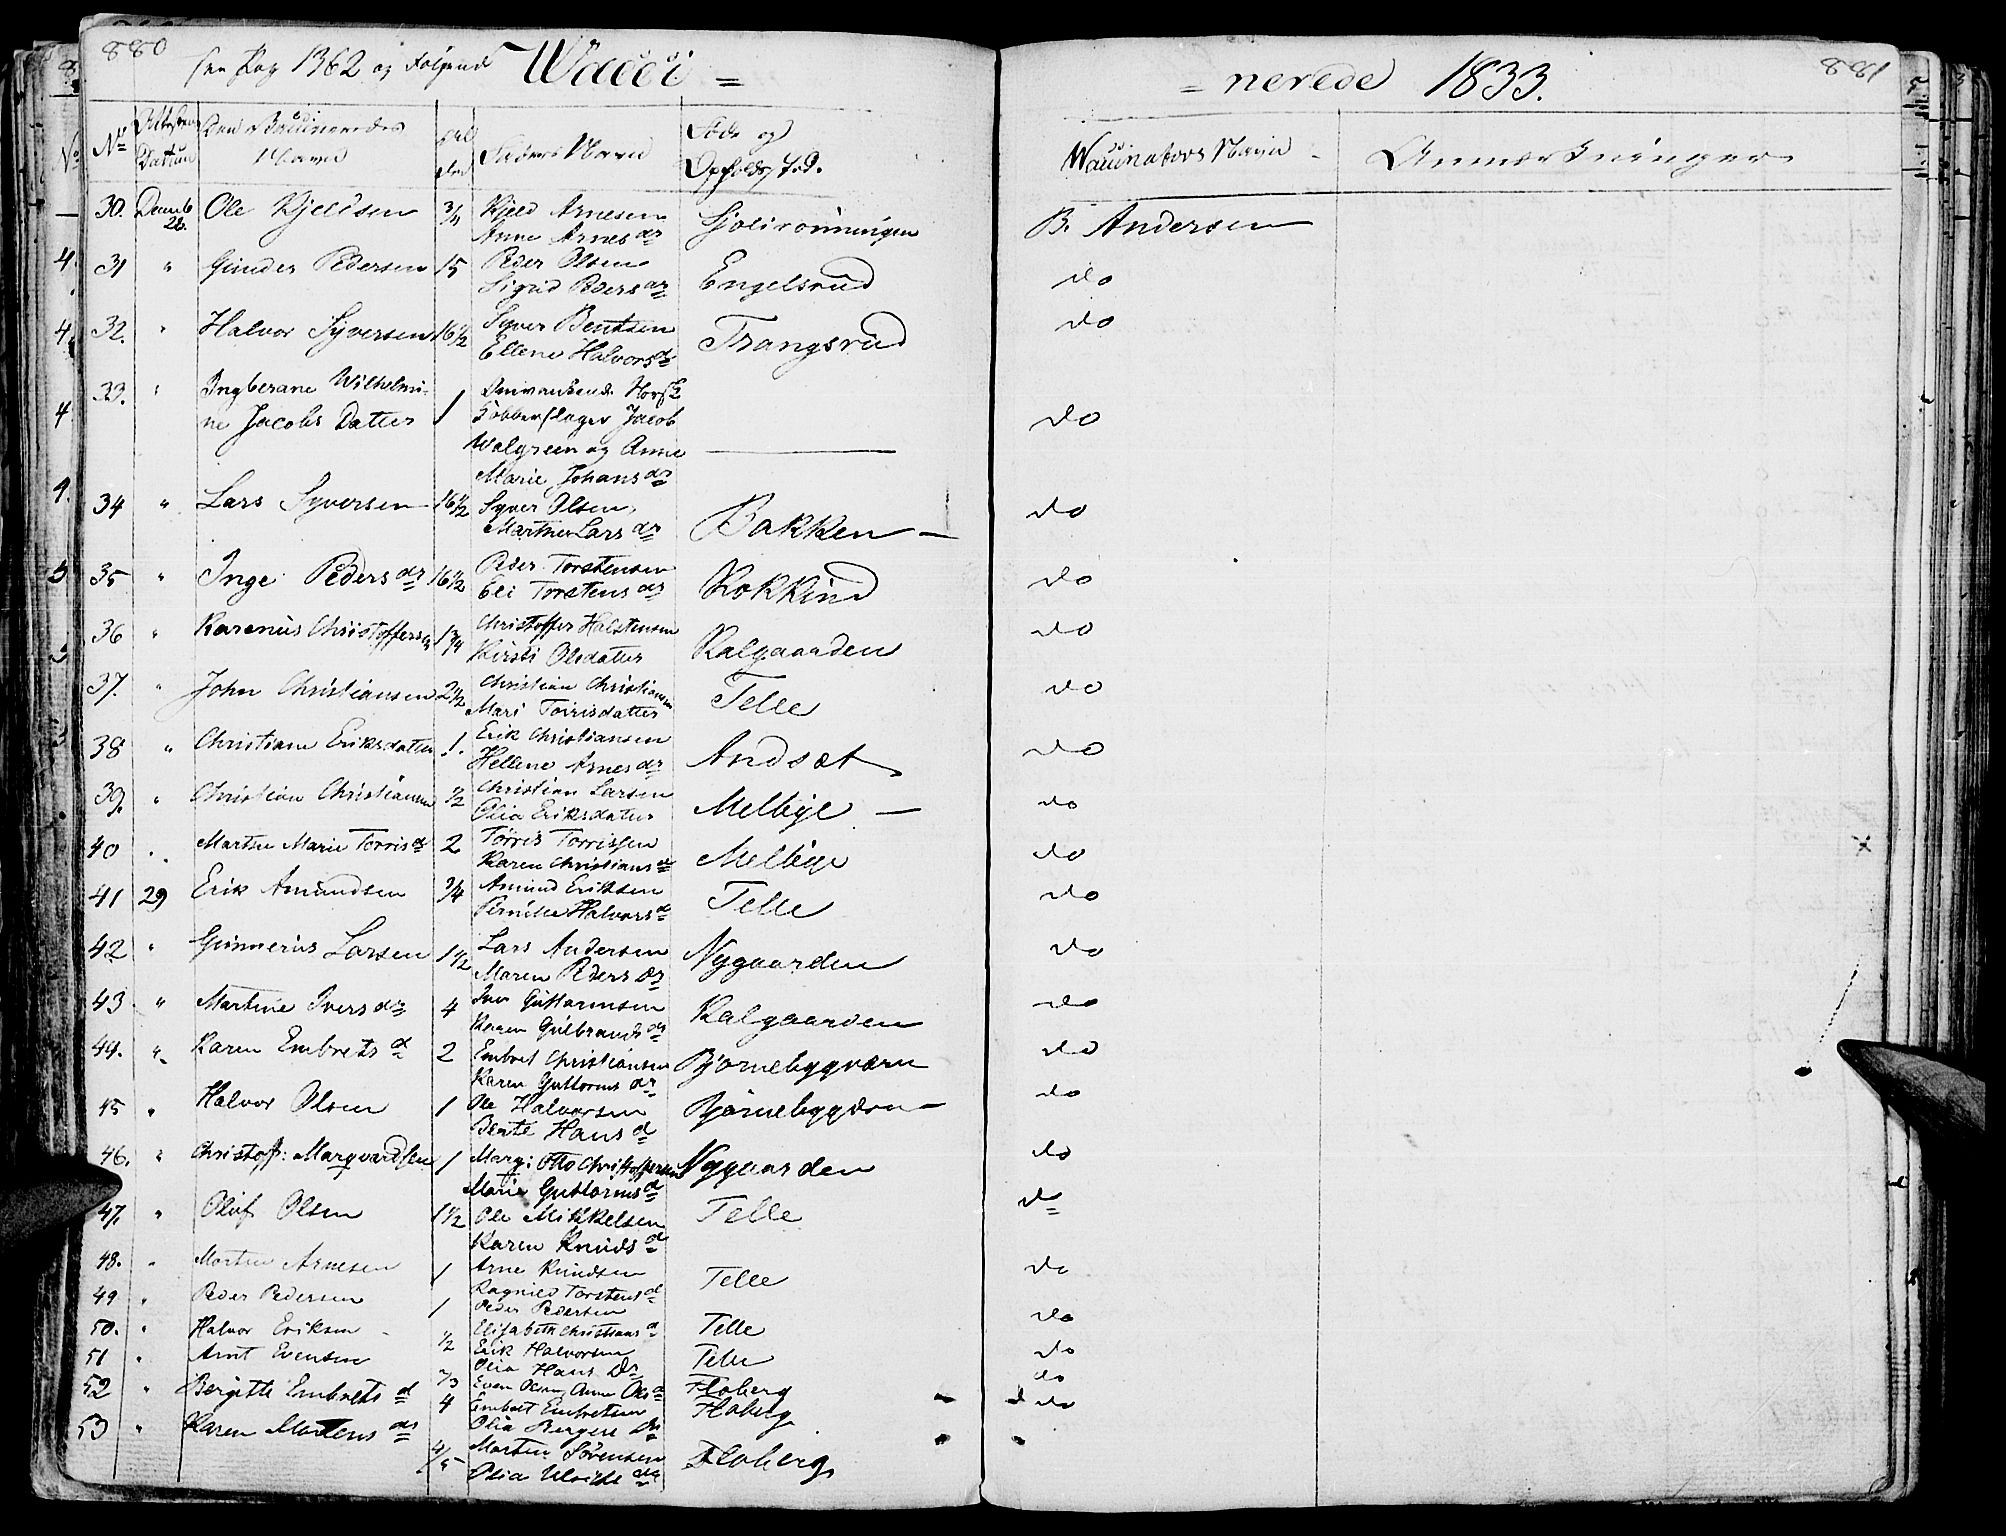 880
881
see Pag 1362 og Følgende
Wacci = = nerede 1833.
No Attestens Datum Den Vaccineredes Navn Alder Faders Navn Føde og Opholds Sted. Waccinators Navn Anmærkninger
30. Decemb 28. Ole Kjeldsen 3/4 Kjeld Arnesen B. Andersen
Anne Arnes dr
31 " Gunder Pedersen 15 Peder Olsen Engelsrud do
Sigrid Peders dr
32. " Halvor Syversen 16 1/2 Syver Bentsen Trangsrud do
Ellene Halvors dr
33. " Ingberane Wilhelmi-
ne Jacobs Datter 1 Kobberslager Jacob do
Walgreen og Anne
Marie Johans dr
34 " Lars Syversen 16 1/2 Syver Olsen Bakken do
Marthe Lars dr
35 " Inge Peders dr 16 1/2 Peder Torstensen Kokkind do
Eli Torstens dr
36 " Karenus Christoffersen 1 3/4 Christoffer Halstensen Kalgaarden do
Kirsti Olsdatter
37. " John Christiansen 2 1/2 Christian Christiansen Telle do
Mari Torrisdatter
38 " Christiane Eriksdatter 1. Erik Christiansen Andsæt do
Hellene Arnes dr
39. " Christian Christiansen 1/2 Christian Larsen Melbye do
Olia Eriksdatter
40 " Marthe Marie Torris d 2 Törris Torrissen Melbye do
Karen Christians d
41 29 Erik Amundsen 3/4 Amund Eriksen Telle do
Pernille Halvors d
42 " Gunnerius Larsen 1 1/2 Lars Andersen Nygaarden do
Maren Peders dr
43 " Marthine Ivers dr 4 Iver Guttormsen Kalgaarden do
Karen Gulbrands dr
44. " Karen Embrets d 2 Embret Christiansen Bjørnebyqværn do
Karen Guttorms dr
45 " Halvor Olsen 1 Ole Halvorsen do
Berte Hans d
46. " Christof: Marqvardsen 1 Marq: Otto Christoffersen Nygaarden do
Marie Guttorms d
47. " Oluf Olsen 1 1/2 Ole Mikkelsen Telle do
Karen Knuds d
48. " Morten Arnesen 1 Arne Knudsen Telle do
Ragnild Torstens d
49 " Peder Pedersen 1 Peder Pedersen Telle do
Elisabeth Christians d
50. " Halvor Eriksen 1/2 Erik Halvorsen Telle do
Olia Hans Dr
51 " Arnt Evensen 2/3 Even Olsen, Anne Ols d Floberg do
52 " Bergitte Embrets d 4 Embret Embretsen Floberg do
Olia Bergers Dr
53 " Karen Mortens dr 4/5 Morten Sörensen Floberg
Olia Ulrichs dr